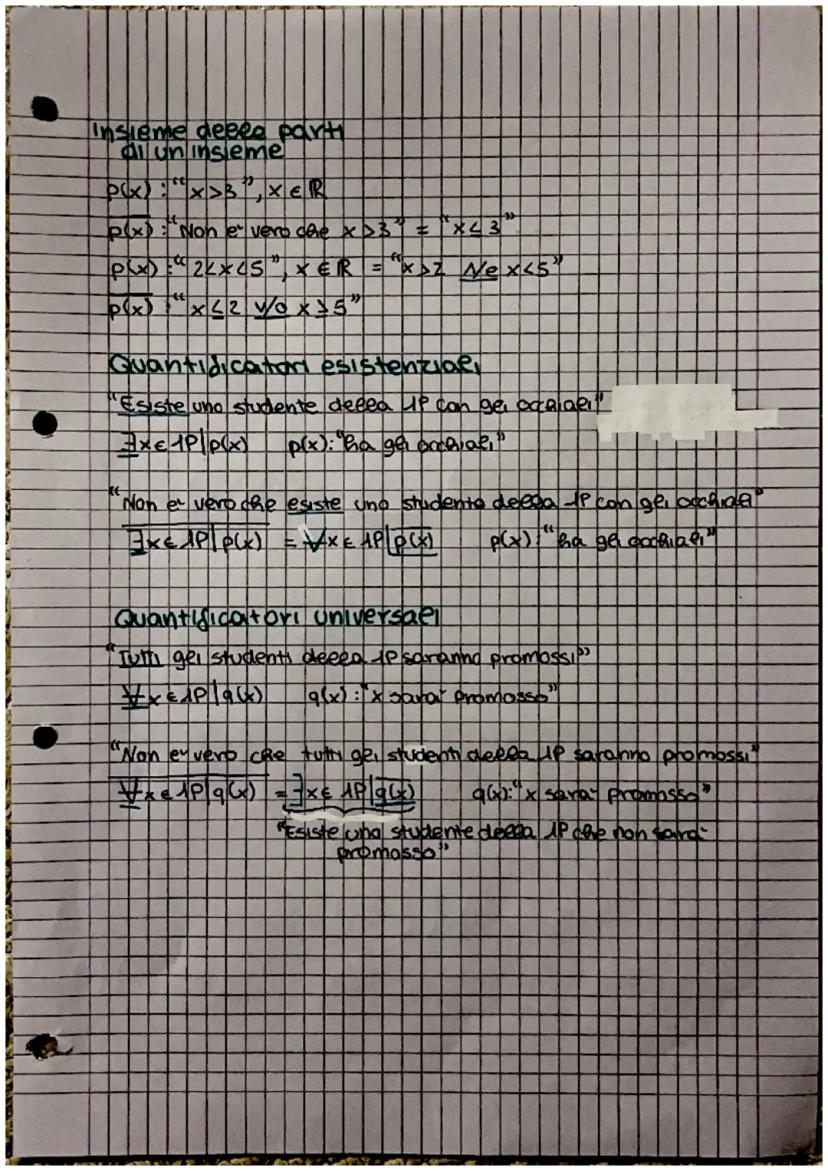 Insieme della parti
di un insieme
p(x): "x>3", x ∈ ℝ
p̅(̅x̅)̅: "Non e' vero che x>3" = "x≤3"
p(x): "2<x<5", x ∈ ℝ = "x>2 ∧/e x<5"
p̅(̅x̅)̅: "x≤2 ∨/o x≥5"
Quantificatori esistenziali
"Esiste uno studente della 1P con gli occhiali"
∃x ∈ 1P | p(x) p(x): "ha gli occhiali"
"Non e' vero che esiste uno studente della 1P con gli occhiali"
∃̅x̅ ̅∈̅ ̅1̅P̅ ̅|̅ ̅p̅(̅x̅)̅ = ∀x ∈ 1P | p̅(̅x̅)̅ p(x): "ha gli occhiali"
Quantificatori universali
"Tutti gli studenti della 1P saranno promossi"
∀x ∈ 1P | q(x) q(x): "x sara' promosso"
"Non e' vero che tutti gli studenti della 1P saranno promossi"
∀̅x̅ ̅∈̅ ̅1̅P̅ ̅|̅ ̅q̅(̅x̅)̅ = ∃x ∈ 1P | q̅(̅x̅)̅ q(x): "x sara' promosso"
"Esiste uno studente della 1P che non sara'
promosso"